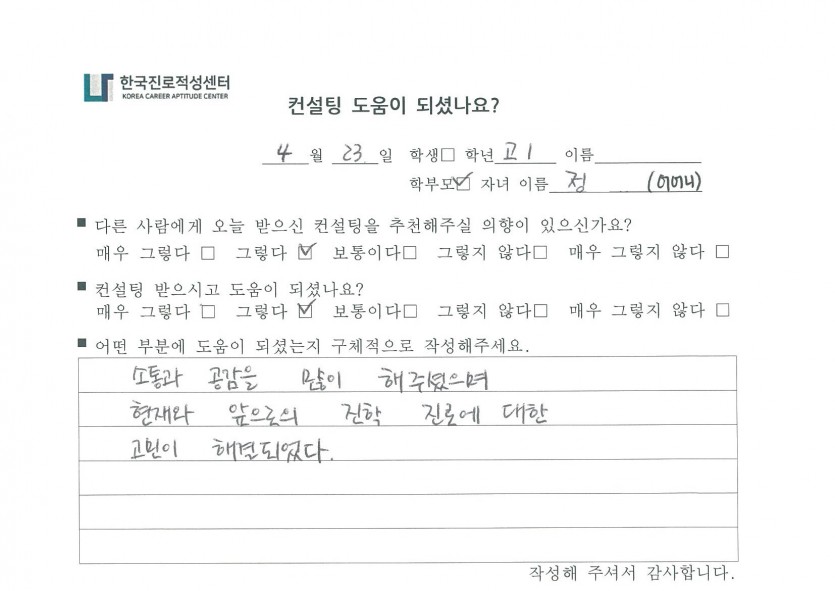 한국진로적성센터
KOREA CAREER APTITUDE CENTER
컨설팅 도움이 되셨나요?
4 월 23 일 학생□ 학년 고1 이름
학부모☑ 자녀 이름 정 (어머니)
■ 다른 사람에게 오늘 받으신 컨설팅을 추천해주실 의향이 있으신가요?
매우 그렇다 □ 그렇다 ☑ 보통이다□ 그렇지 않다□ 매우 그렇지 않다 □
■ 컨설팅 받으시고 도움이 되셨나요?
매우 그렇다 □ 그렇다 ☑ 보통이다□ 그렇지 않다□ 매우 그렇지 않다 □
■ 어떤 부분에 도움이 되셨는지 구체적으로 작성해주세요.
소통과 공감을 많이 해주셨으며
현재와 앞으로의 진학 진로에 대한
고민이 해결되었다.
작성해 주셔서 감사합니다.